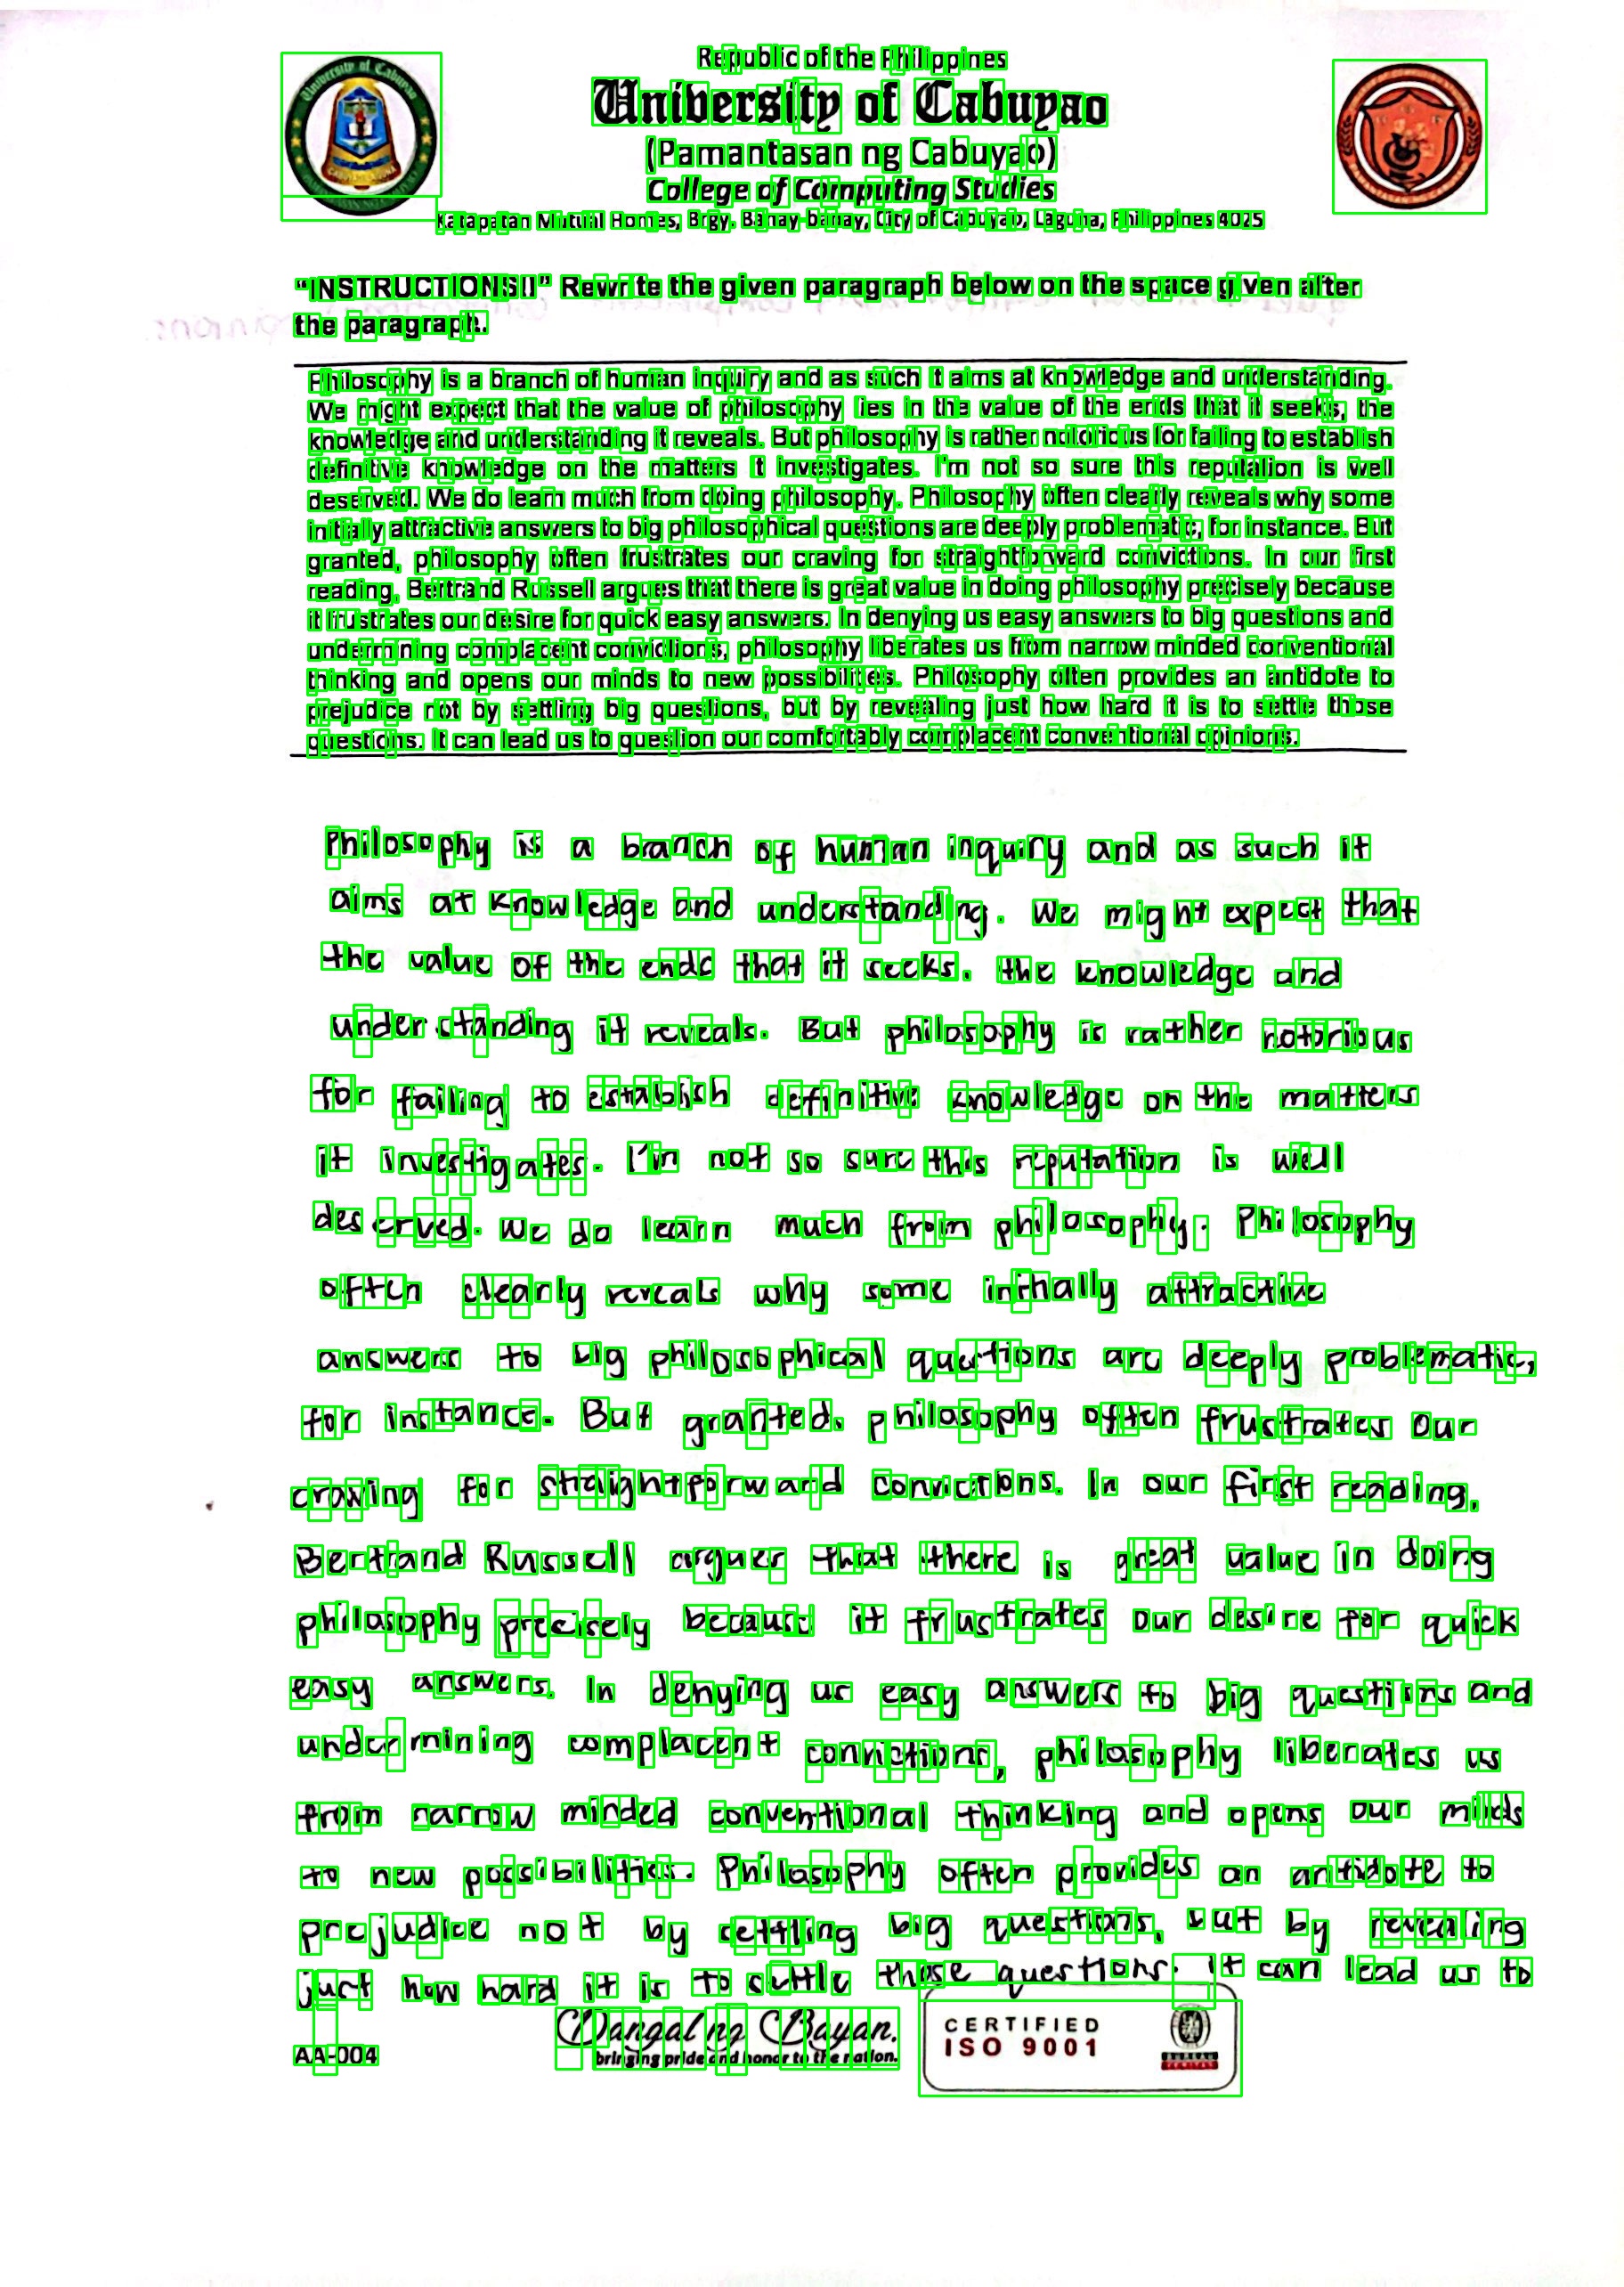 Republic of the Philippines
University of Cabuyao
(Pamantasan ng Cabuyao)
College of Computing Studies
Katapatan Mutual Homes, Brgy. Banay-banay, City of Cabuyao, Laguna, Philippines 4025
"INSTRUCTIONS!!" Rewrite the given paragraph below on the space given after
the paragraph.
Philosophy is a branch of human inquiry and as such it aims at knowledge and understanding.
We might expect that the value of philosophy lies in the value of the ends that it seeks, the
knowledge and understanding it reveals. But philosophy is rather notorious for failing to establish
definitive knowledge on the matters it investigates. I'm not so sure this reputation is well
deserved. We do learn much from doing philosophy. Philosophy often clearly reveals why some
initially attractive answers to big philosophical questions are deeply problematic, for instance. But
granted, philosophy often frustrates our craving for straightforward convictions. In our first
reading, Bertrand Russell argues that there is great value in doing philosophy precisely because
it frustrates our desire for quick easy answers. In denying us easy answers to big questions and
undermining complacent convictions, philosophy liberates us from narrow minded conventional
thinking and opens our minds to new possibilities. Philosophy often provides an antidote to
prejudice not by settling big questions, but by revealing just how hard it is to settle those
questions. It can lead us to question our comfortably complacent conventional opinions.
Philosophy is a branch of human inquiry and as such it
aims at knowledge and understanding. We might expect that
the value of the ends that it seeks. the knowledge and
understanding it reveals. But philosophy is rather notorious
for failing to establish definitive knowledge on the matters
it investigates. I'm not so sure this reputation is well
deserved. We do learn much from philosophy. Philosophy
often clearly reveals why some initially attractive
answers to big philosophical questions are deeply problematic,
for instance. But granted, philosophy often frustrates our
craving for straightforward convictions. In our first reading,
Bertrand Russell argues that there is great value in doing
philosophy precisely because it frustrates our desire for quick
easy answers. In denying us easy answers to big questions and
undermining complacent convictions, philosophy liberates us
from narrow minded conventional thinking and opens our minds
to new possibilities. Philosophy often provides an antidote to
prejudice not by settling big questions, but by revealing
just how hard it is to settle those questions. It can lead us to
Dangal ng Bayan.
bringing pride and honor to the nation.
AA-004
CERTIFIED
ISO 9001
BUREAU
VERITAS